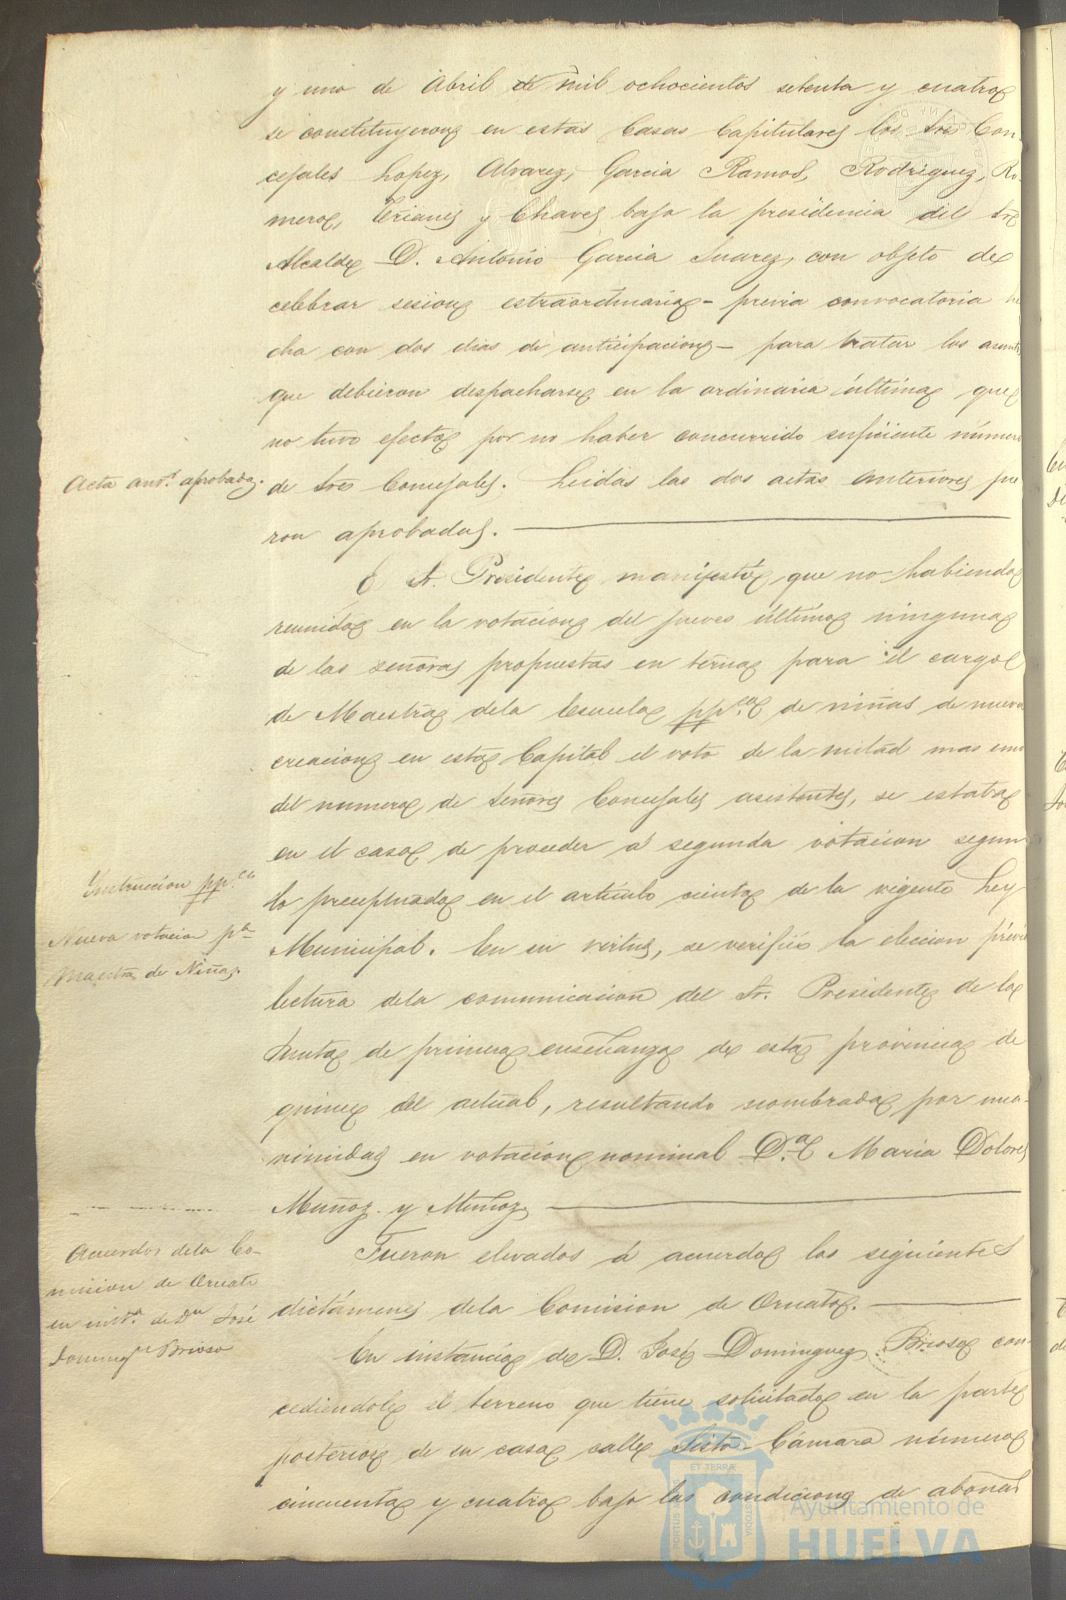 y uno de Abril de mil ochocientos setenta y cuatro
se constituyeron en estas Casas Capitulares los Sres Con-
cejales Lopez, Alvarez, Garcia Ramos, Rodriguez, Ro-
mero, Trianes y Chaves bajo la presidencia del Sr
Alcalde D. Antonio Garcia Suarez, con objeto de
celebrar sesion estraordinaria - previa convocatoria he
cha con dos dias de anticipacion - para tratar los asuntos
que debieron despacharse en la ordinaria última que
no tuvo efecto por no haber concurrido suficiente número
Acta antr. aprobada.
de Sres Concejales. Leidas las dos actas anteriores fue
ron aprobadas.
El Sr. Presidente manifestó que no habiendo
reunido en la votacion del jueves último ninguna
de las señoras propuestas en terna para el cargo
de Maestra dela Escuela ppca de niñas de nueva
creacion en esta Capital el voto de la mitad mas uno
del numero de Señores Concejales asistentes, se estaba
en el caso de proceder á segunda votacion segun
Instruccion ppca
lo preceptuado en el articulo ciento de la vigente Ley
Nueva votacion pa
Municipal. En su virtud, se verificó la eleccion prévia
Maestra de Niñas.
lectura dela comunicacion del Sr. Presidente de la
Junta de primera enseñanza de esta provincia de
quince del actual, resultando nombrada por una-
nimidad en votacion nominal Da Maria Dolores
Muñoz y Muñoz
Acuerdos dela Co-
mision de Ornato
en insta de Dn José
Domingz Brioso
Fueron elevados á acuerdo los siguientes
dictámenes dela Comision de Ornato.
En instancia de D. José Dominguez Brioso con-
cediendole el terreno que tiene solicitado en la parte
posterior de su casa calle Sisto Cámara número
cincuenta y cuatro bajo las condiciones de abonar
PORTUS
ET TERRAE
CUSTODIA
Ayuntamiento de
HUELVA